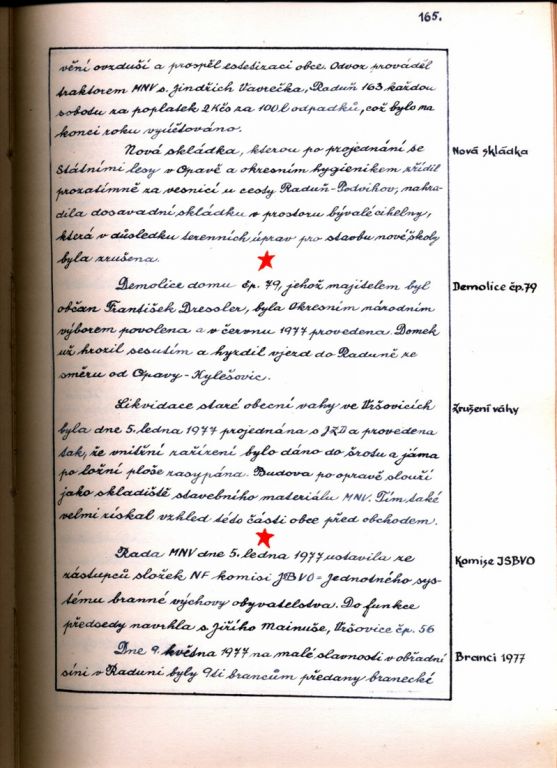 165.
vění ovzduší a prospěl estetizaci obce. Odvoz prováděl
traktorem MNV s. Jindřich Vavrečka, Raduň 163 každou
sobotu za poplatek 2 Kčs za 100 l odpadků, což bylo na
konci roku vyúčtováno.
Nová skládka, kterou po projednání se
Nová skládka
Státními lesy v Opavě a okresním hygienikem zřídil
prozatímně za vesnicí u cesty Raduň-Podvihov, nahra-
dila dosavadní skládku v prostoru bývalé cihelny,
která v důsledku terenních úprav pro stavbu nové školy
byla zrušena.
Demolice domu čp. 79, jehož majitelem byl
Demolice čp.79
občan František Dressler, byla Okresním národním
výborem povolena a v červnu 1977 provedena. Domek
už hrozil sesutím a hyzdil vjezd do Raduně ze
směru od Opavy-Kylešovic.
Likvidace staré obecní váhy ve Vršovicích
Zrušení váhy
byla dne 5. ledna 1977 projednána s JZD a provedena
tak, že vnitřní zařízení bylo dáno do šrotu a jáma
po ložní ploše zasypána. Budova po opravě slouží
jako skladiště stavebního materiálu MNV. Tím také
velmi získal vzhled této části obce před obchodem.
Rada MNV dne 5. ledna 1977 ustavila ze
Komise JSBVO
zástupců složek NF komisi JSBVO = Jednotného sys-
tému branné výchovy obyvatelstva. Do funkce
předsedy navrhla s. Jiřího Mainuše, Vršovice čp. 56
Dne 9. května 1977 na malé slavnosti v obřadní
Branci 1977
síni v Raduni byly 9ti brancům předány branecké